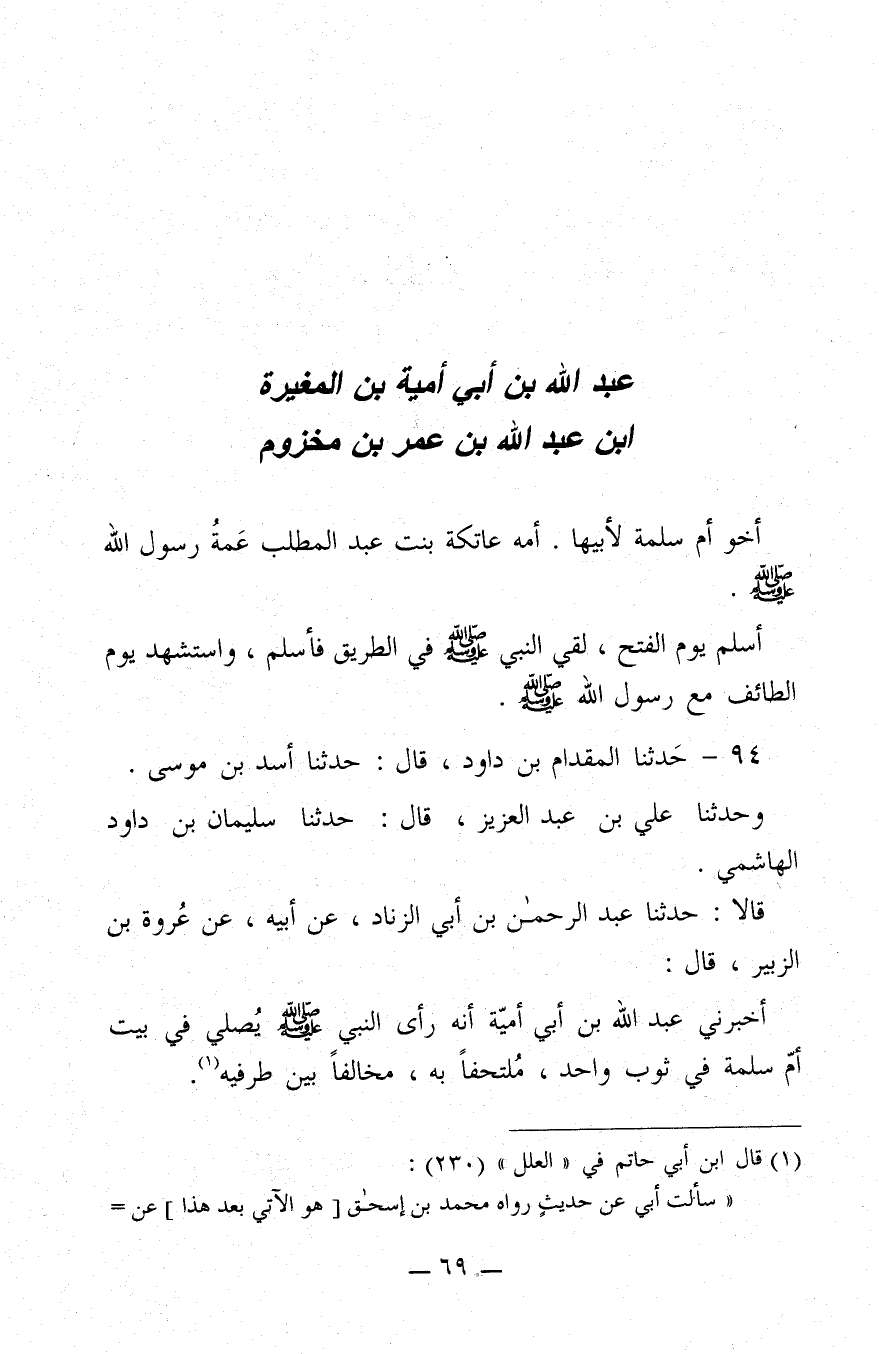 عبد الله بن أبي أمية بن المغيرة
ابن عبد الله بن عمر بن مخزوم
أخو أم سلمة لأبيها . أمه عاتكة بنت عبد المطلب عَمةُ رسول الله
ﷺ .
أسلم يوم الفتح ، لقي النبي ﷺ في الطريق فأسلم ، واستشهد يوم
الطائف مع رسول الله ﷺ .
٩٤ – حَدثنا المقدام بن داود ، قال : حدثنا أسد بن موسى .
وحدثنا علي بن عبد العزيز ، قال : حدثنا سليمان بن داود
الهاشمي .
قالا : حدثنا عبد الرحمـٰن بن أبي الزناد ، عن أبيه ، عن عُروة بن
الزبير ، قال :
أخبرني عبد الله بن أبي أميّة أنه رأى النبي ﷺ يُصلي في بيت
أمّ سلمة في ثوب واحد ، مُلتحفاً به ، مخالفاً بين طرفيه(١).
(١) قال ابن أبي حاتم في « العلل » (٢٣٠) :
« سألت أبي عن حديثٍ رواه محمد بن إسحـٰق [ هو الآتي بعد هذا ] عن =
— ٦٩ —